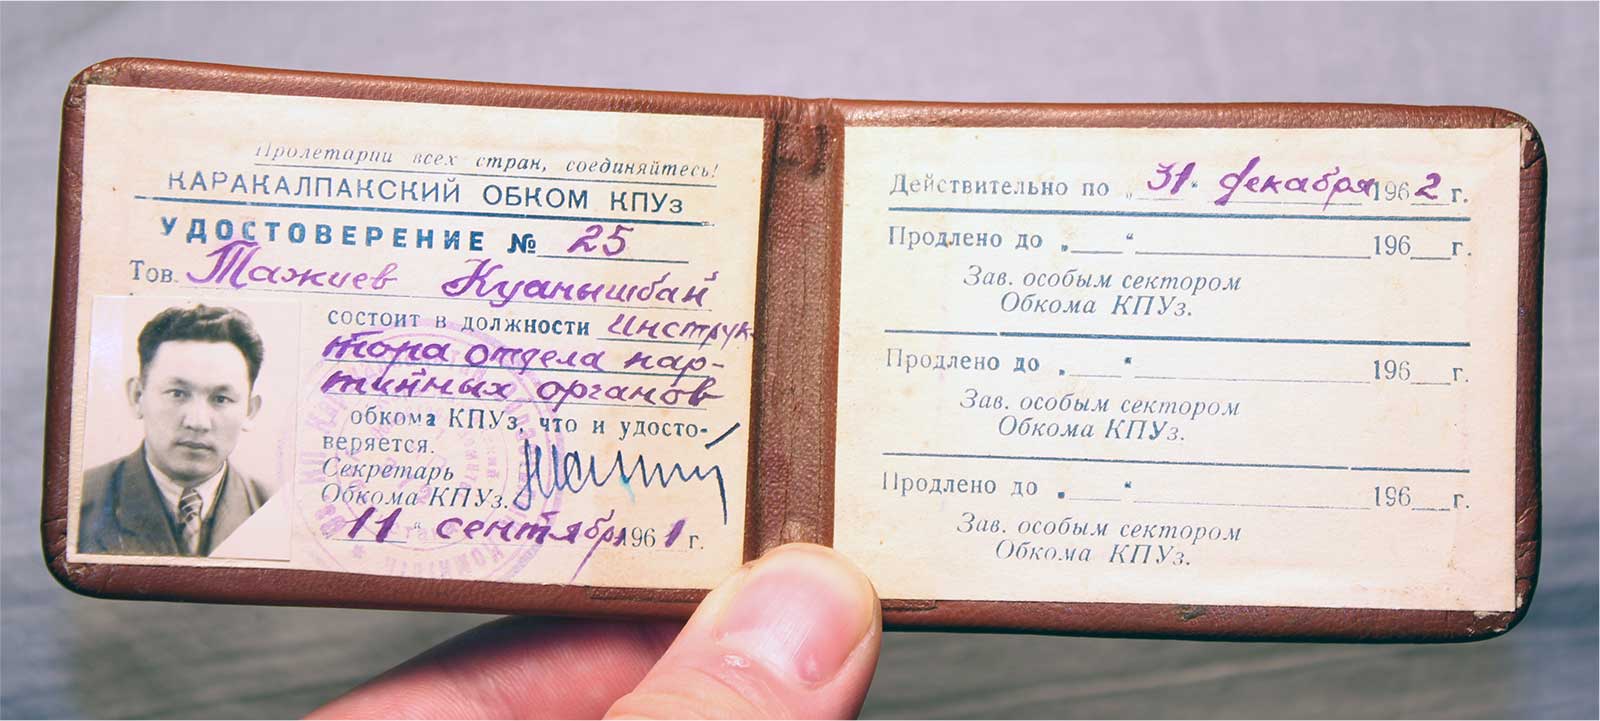 Пролетарии всех стран, соединяйтесь!
КАРАКАЛПАКСКИЙ ОБКОМ КПУз
УДОСТОВЕРЕНИЕ № 25
Тов. Тажиев Куанышбай
состоит в должности инструк-
тора отдела пар-
тийных органов
обкома КПУз, что и удосто-
веряется.
Секретарь
Обкома КПУз.
„11“ сентября 1961 г.
Действительно по „31“ декабря 1962 г.
Продлено до „___“ ______ 196__ г.
Зав. особым сектором
Обкома КПУз.
Продлено до „___“ ______ 196__ г.
Зав. особым сектором
Обкома КПУз.
Продлено до „___“ ______ 196__ г.
Зав. особым сектором
Обкома КПУз.